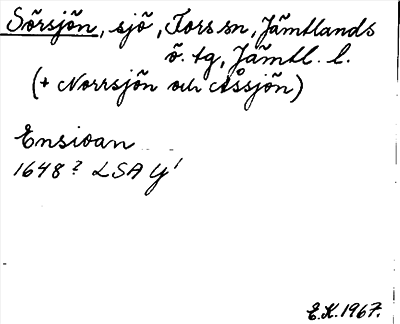 Sörsjön, sjö, Fors sn, Jämtlands
ö. tg, Jämtl. l.
(+ Norrsjön och Åssjön)
Ensioan
1648? LSA Y¹
E.K. 1967.